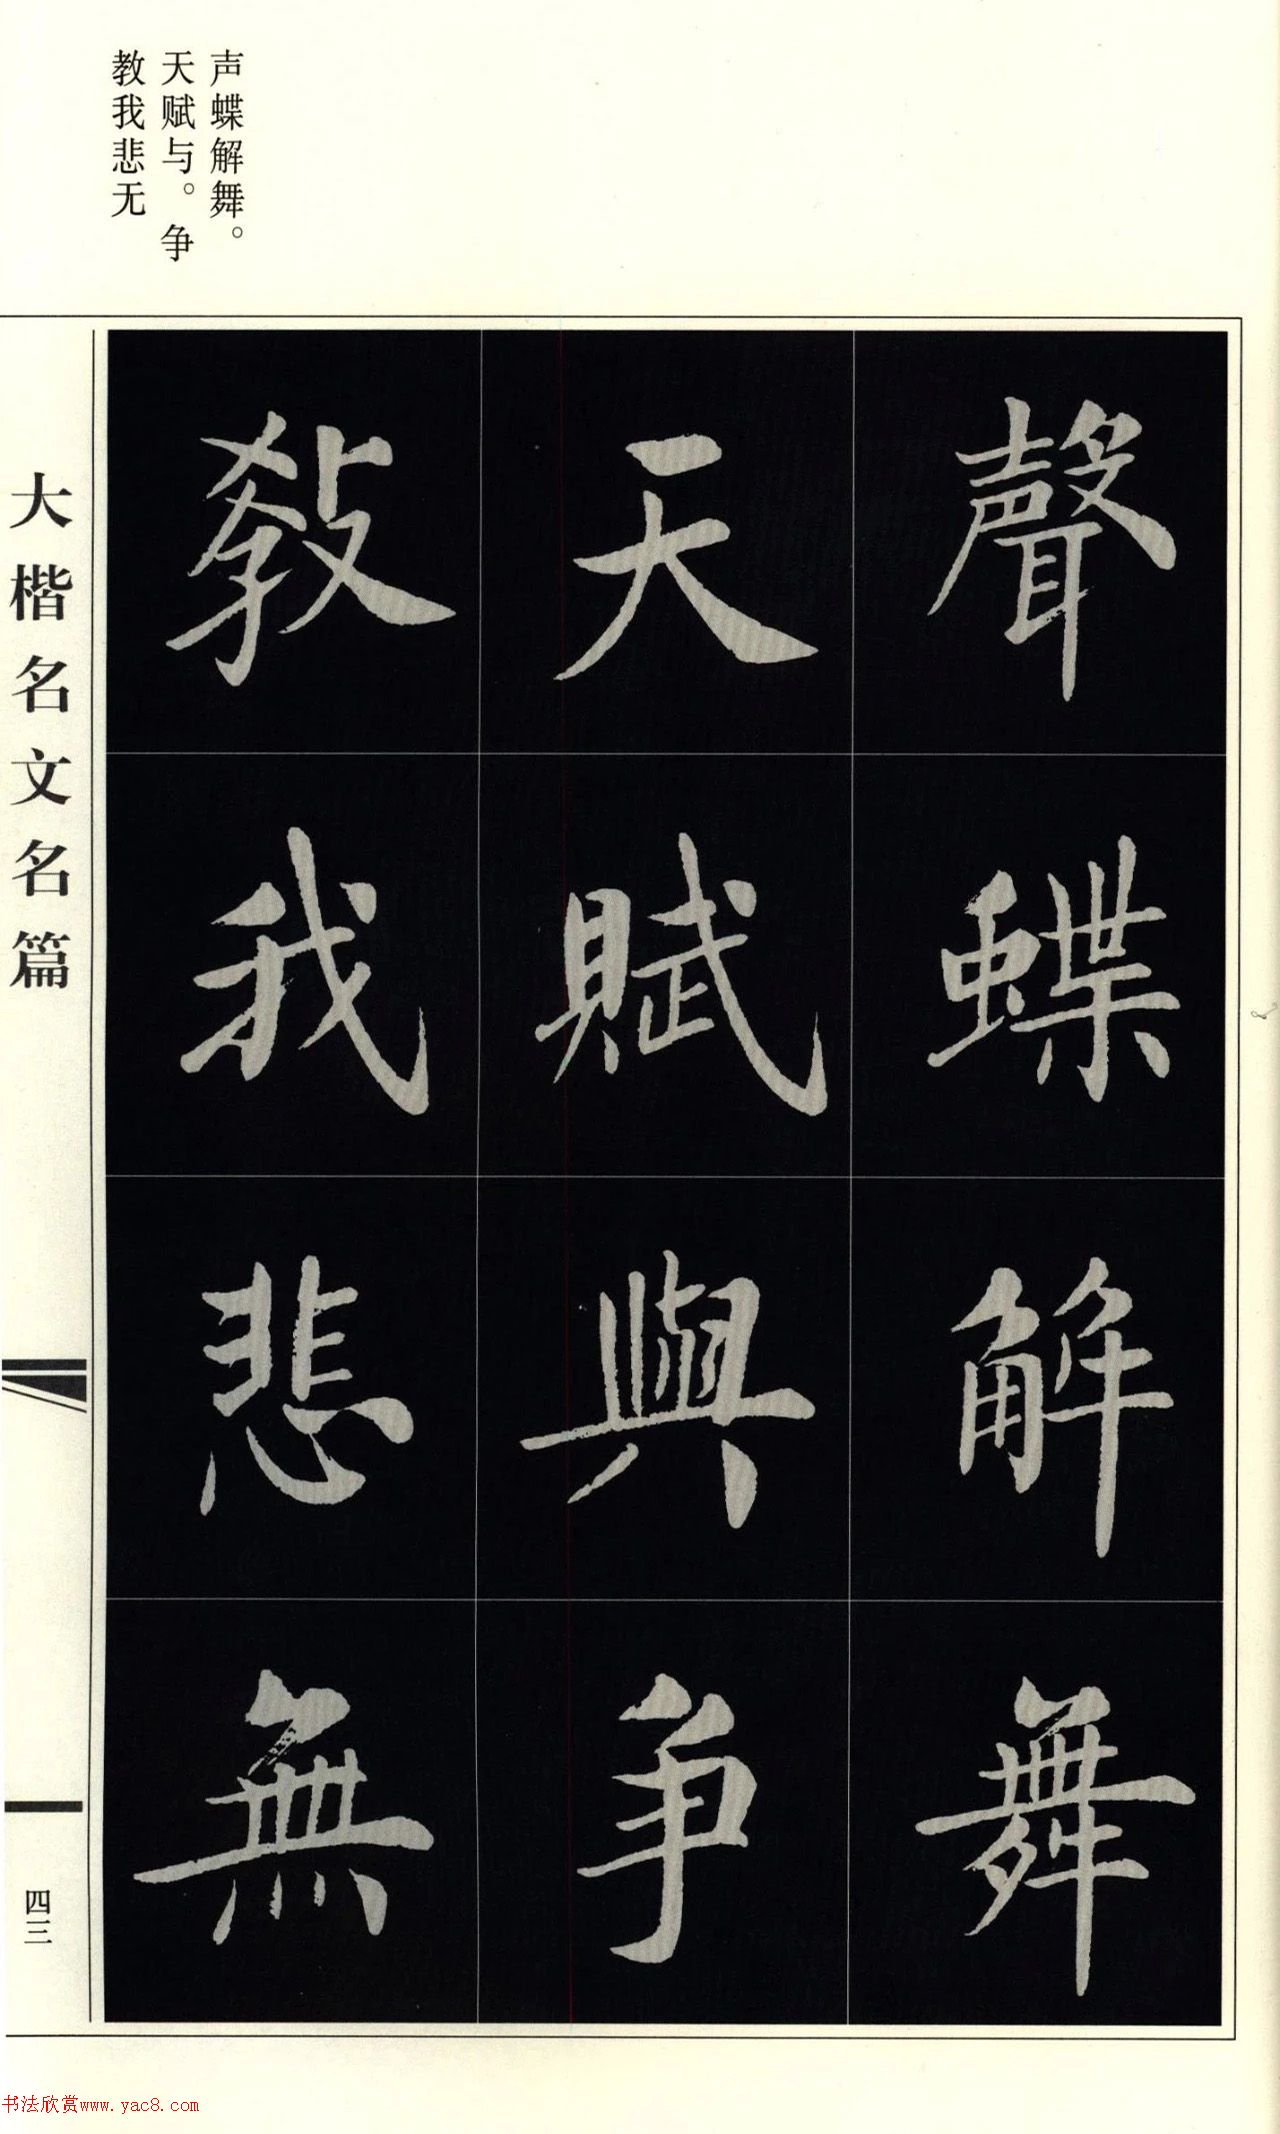 声蝶解舞。
天赋与。争
教我悲无
聲蝶解舞
天賦與爭
教我悲無
大楷名文名篇
四三
书法欣赏www.yac8.com